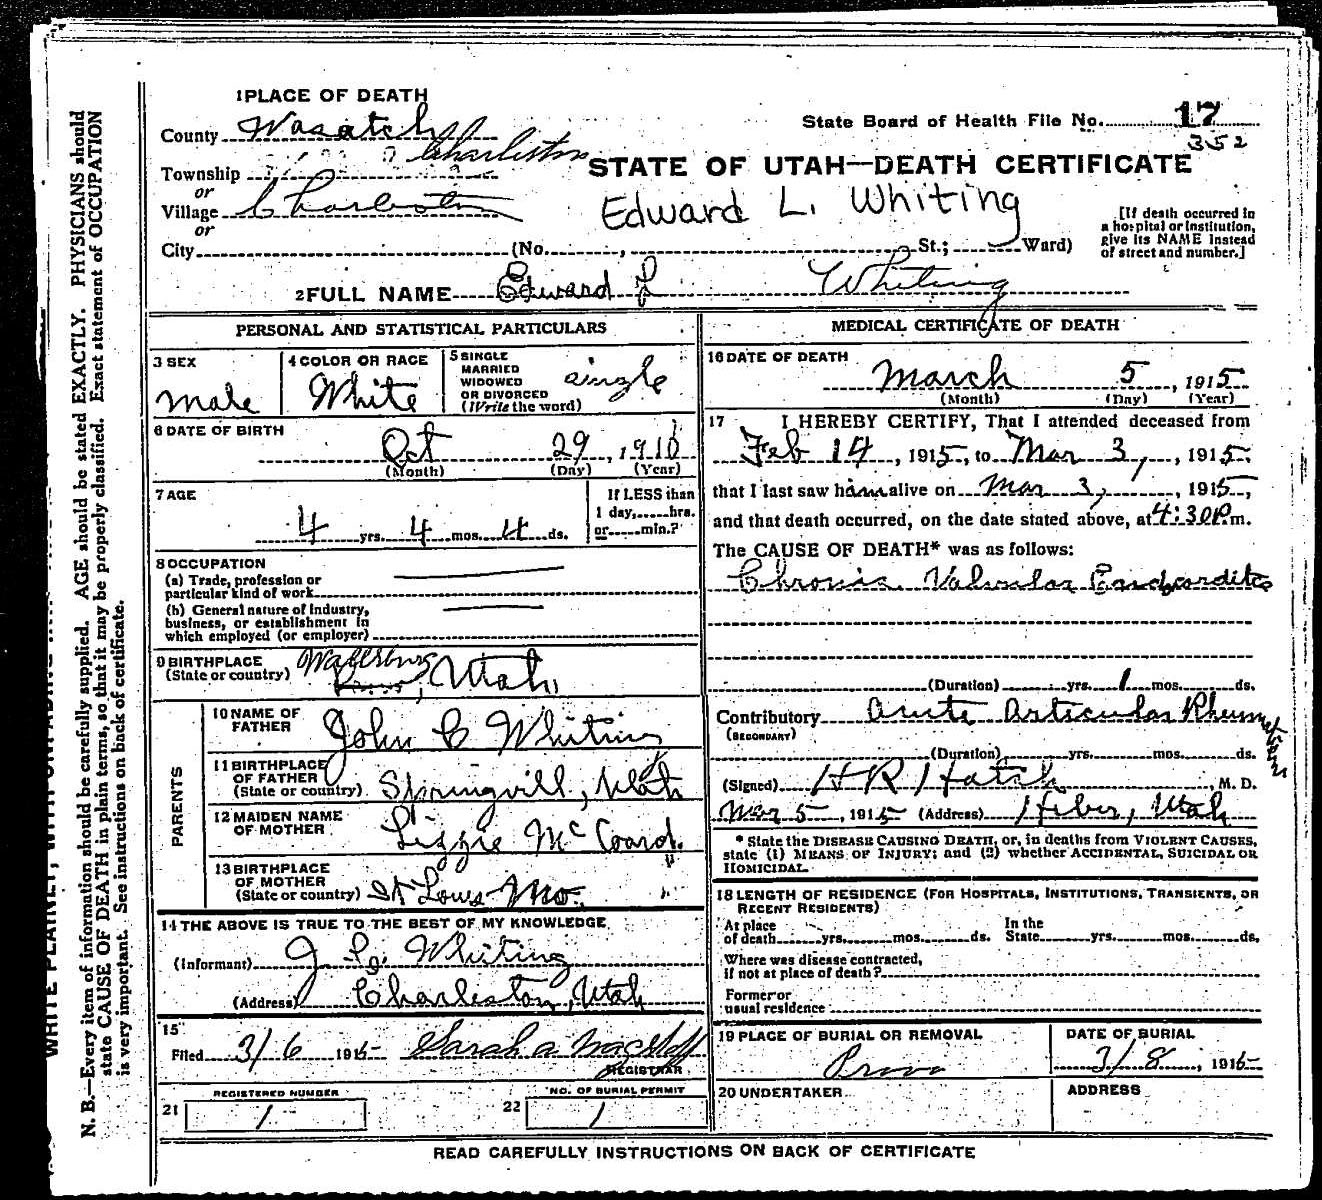 1 PLACE OF DEATH
County Wasatch
State Board of Health File No. 17
352
Charleston
Township
or
Village Charleston
or
City (No. , St.; Ward)
STATE OF UTAH—DEATH CERTIFICATE
Edward L. Whiting
[If death occurred in
a hospital or institution,
give its NAME instead
of street and number.]
2 FULL NAME Edward L Whiting
PERSONAL AND STATISTICAL PARTICULARS
3 SEX
male
4 COLOR OR RACE
White
5 SINGLE
MARRIED
WIDOWED
OR DIVORCED
(Write the word)
single
6 DATE OF BIRTH
Oct 29, 1910
(Month) (Day) (Year)
7 AGE
4 yrs. 4 mos. 4 ds.
If LESS than
1 day, hrs.
or min.?
8 OCCUPATION
(a) Trade, profession or
particular kind of work
(b) General nature of industry,
business, or establishment in
which employed (or employer)
9 BIRTHPLACE
(State or country) Wallsburg, Utah,
PARENTS
10 NAME OF
FATHER John C Whiting
11 BIRTHPLACE
OF FATHER
(State or country) Springvill, Utah
12 MAIDEN NAME
OF MOTHER Lizzie McCoard.
13 BIRTHPLACE
OF MOTHER
(State or country) St Louis Mo. "
14 THE ABOVE IS TRUE TO THE BEST OF MY KNOWLEDGE
(Informant) J. C. Whiting
(Address) Charleston, Utah
15
Filed 3/6 1915 Sarah A Wagstaff
REGISTRAR
REGISTERED NUMBER
21 1
NO. OF BURIAL PERMIT
22 1
MEDICAL CERTIFICATE OF DEATH
16 DATE OF DEATH
March 5, 1915
(Month) (Day) (Year)
17 I HEREBY CERTIFY, That I attended deceased from
Feb 14, 1915, to Mar 3, 1915,
that I last saw him alive on Mar 3, 1915,
and that death occurred, on the date stated above, at 4:30 P.m.
The CAUSE OF DEATH* was as follows:
Chronic Valvular Endocarditis
(Duration) yrs. 1 mos. ds.
Contributory Acute Articular Rheumatism
(SECONDARY)
(Duration) yrs. mos. ds.
(Signed) H R Hatch M. D.
Mar 5, 1915 (Address) Heber, Utah
* State the DISEASE CAUSING DEATH, or, in deaths from VIOLENT CAUSES,
state (1) MEANS OF INJURY; and (2) whether ACCIDENTAL, SUICIDAL OR
HOMICIDAL.
18 LENGTH OF RESIDENCE (FOR HOSPITALS, INSTITUTIONS, TRANSIENTS, OR
RECENT RESIDENTS)
At place
of death yrs. mos. ds.
In the
State yrs. mos. ds.
Where was disease contracted,
if not at place of death?
Former or
usual residence
19 PLACE OF BURIAL OR REMOVAL
Provo
DATE OF BURIAL
3/8, 1915
20 UNDERTAKER
ADDRESS
READ CAREFULLY INSTRUCTIONS ON BACK OF CERTIFICATE
WRITE PLAINLY, WITH UNFADING INK
N. B.—Every item of information should be carefully supplied. AGE should be stated EXACTLY. PHYSICIANS should
state CAUSE OF DEATH in plain terms, so that it may be properly classified. Exact statement of OCCUPATION
is very important. See instructions on back of certificate.